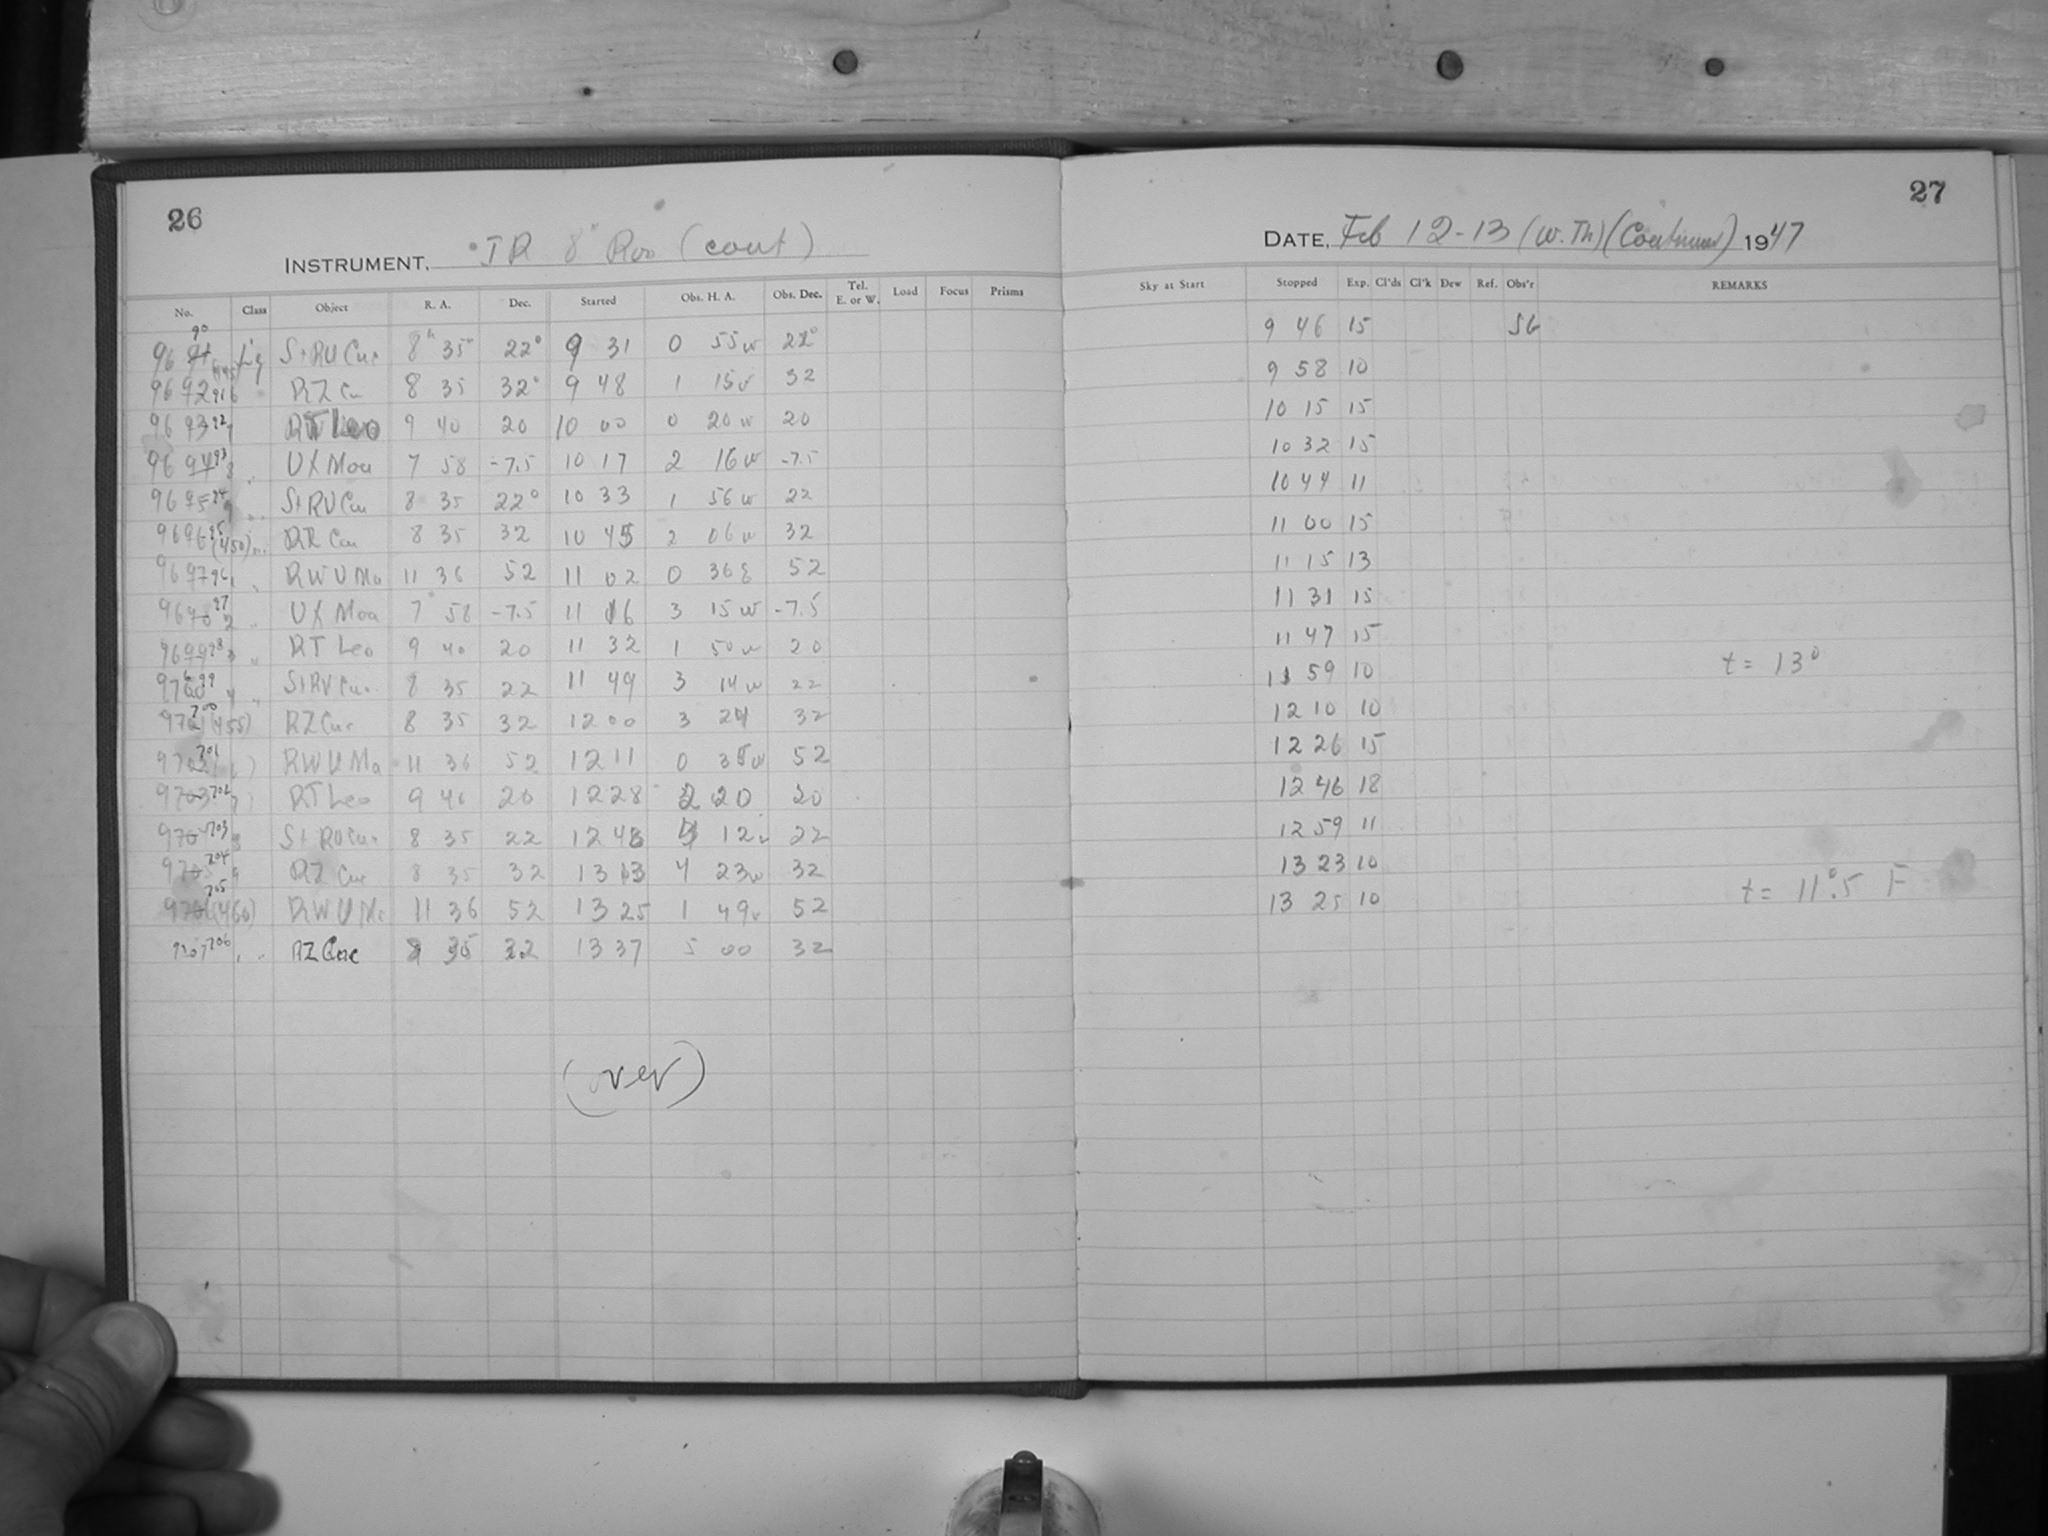 26
INSTRUMENT, IR 8" Ross (cont)
No. Class Object R. A. Dec. Started Obs. H. A. Obs. Dec. Tel. E. or W. Load Focus Prisms
S+RU Cnc 8h 35 22° 9 31 0 55w 22°
RZ Cn 8 35 32° 9 48 1 15w 32
RT Leo 9 40 20 10 00 0 20w 20
UX Mon 7 58 -7.5 10 17 2 16w -7.5
S+RU Cnc 8 35 22° 10 33 1 56w 22
8 35 32 10 45 2 06w 32
RW U Ma 11 36 52 11 02 0 36E 52
UX Mon 7 58 -7.5 11 16 3 15w -7.5
RT Leo 9 40 20 11 32 1 50w 20
S+RU Cnc 8 35 22 11 49 3 14w 22
RZ Cnc 8 35 32 12 00 3 24 32
RW U Ma 11 36 52 12 11 0 35w 52
RT Leo 9 40 20 12 28 2 20 20
S+RU Cnc 8 35 22 12 48 4 12w 22
RZ Cnc 8 35 32 13 13 4 23w 32
RW U Ma 11 36 52 13 25 1 49w 52
RZ Cnc 8 35 32 13 37 5 00 32
(over)
27
DATE, Feb 12-13 (W. Th) (Continued) 1947
Sky at Start Stopped Exp. Cl'ds Cl'k Dew Ref. Obs'r REMARKS
9 46 15 SG
9 58 10
10 15 15
10 32 15
10 44 11
11 00 15
11 15 13
11 31 15
11 47 15
11 59 10 t = 13°
12 10 10
12 26 15
12 46 18
12 59 11
13 23 10
13 25 10 t = 11°.5 F